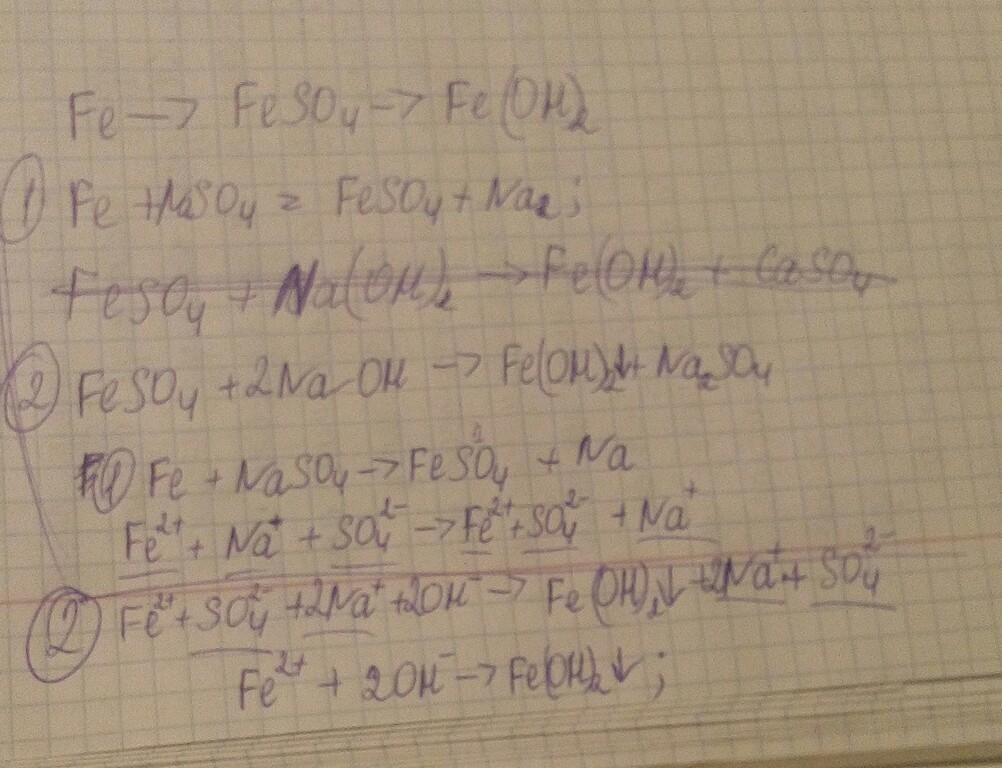 Fe → FeSO₄ → Fe(OH)₂
① Fe + NaSO₄ = FeSO₄ + Na₂;
FeSO₄ + Na(OH)₂ → Fe(OH)₂ + CaSO₄
② FeSO₄ + 2NaOH → Fe(OH)₂↓ + Na₂SO₄
① Fe + NaSO₄ → FeSO₄ + Na
Fe²⁺ + Na⁺ + SO₄²⁻ → Fe²⁺ + SO₄²⁻ + Na⁺
② Fe²⁺ + SO₄²⁻ + 2Na⁺ + 2OH⁻ → Fe(OH)₂↓ + 2Na⁺ + SO₄²⁻
Fe²⁺ + 2OH⁻ → Fe(OH)₂↓;